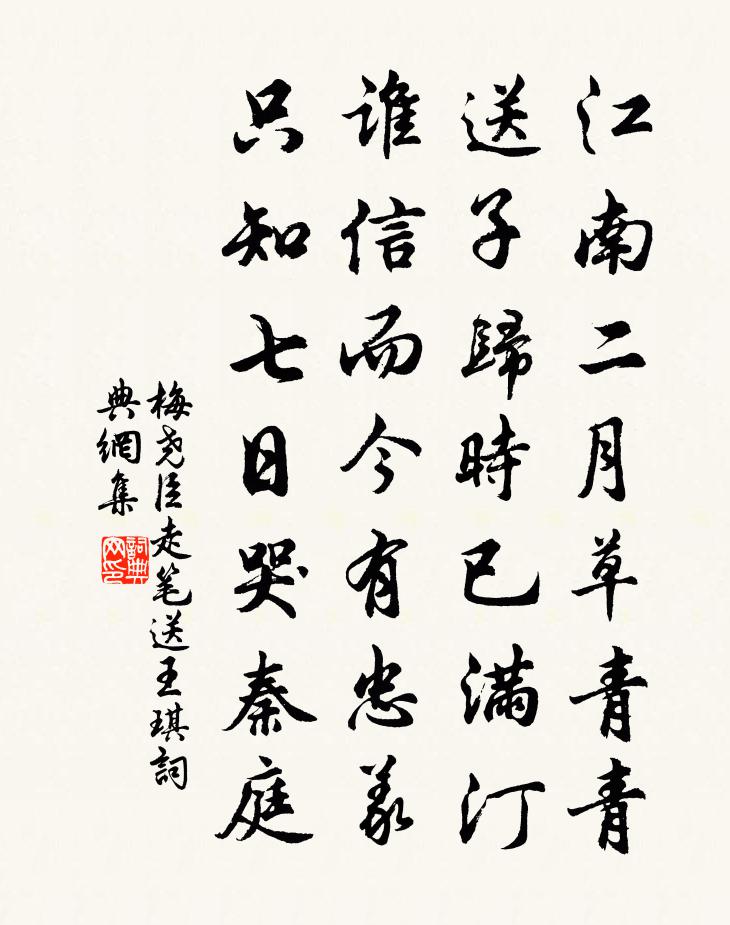 江南二月草青青
送子歸時已滿汀
誰信而今有忠義
只知七日哭秦庭
梅尧臣走笔送王琪詞
典網集
詞典
网印